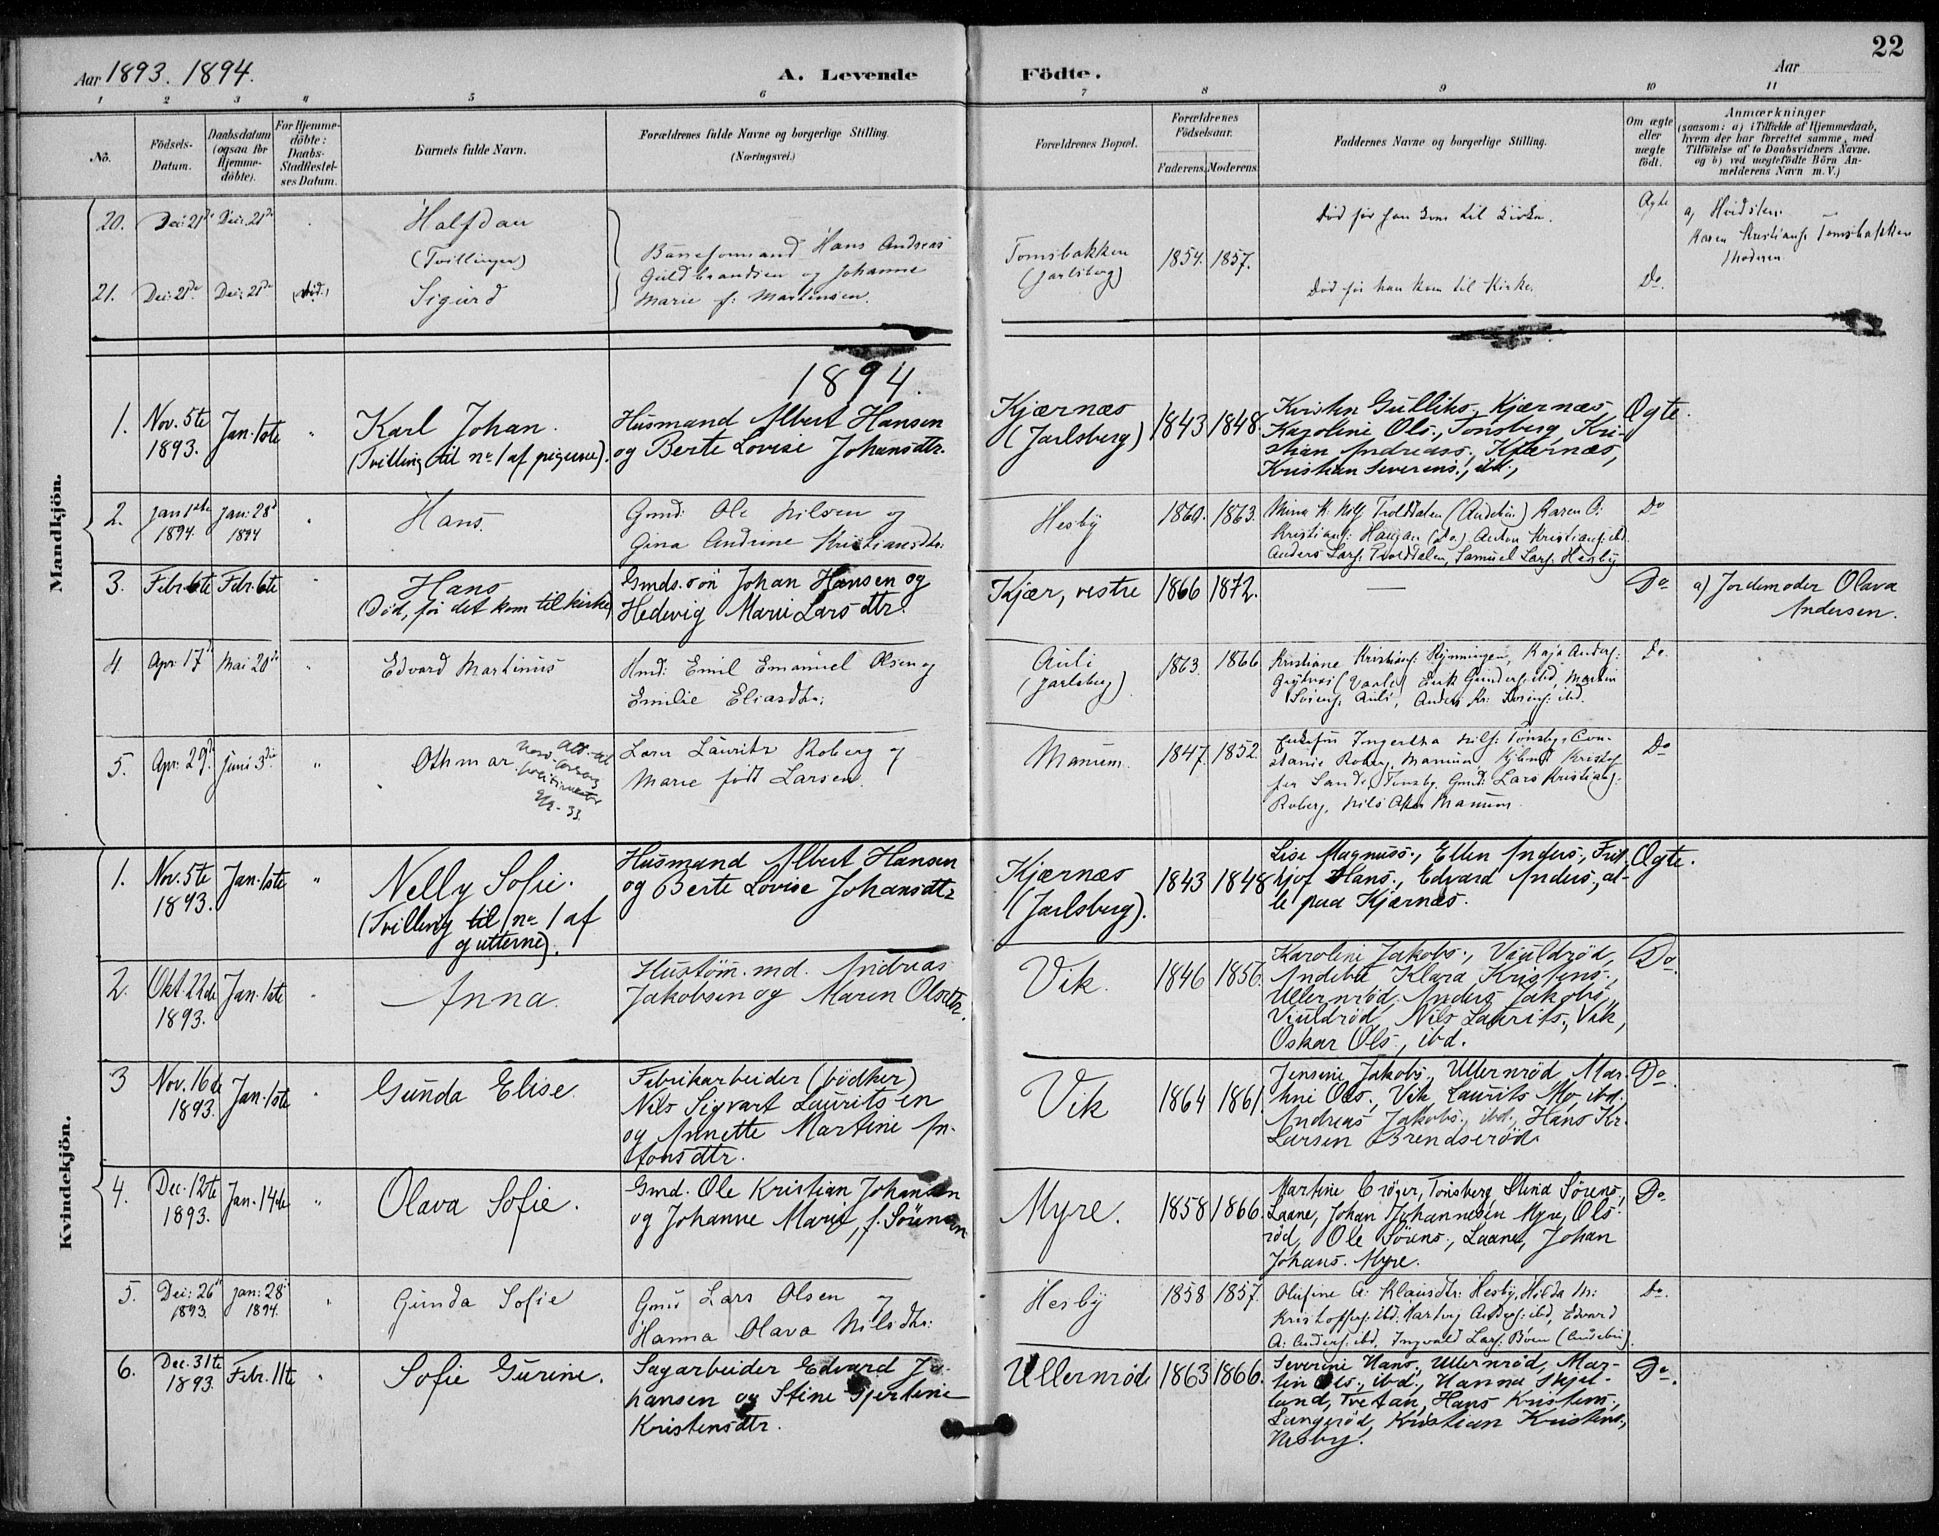 22
Aar 1893. 1894. A. Levende Födte. Aar
1 2 3 4 5 6 7 8 9 10 11
No. Födsels-Datum. Daabsdatum (ogsaa for Hjemme-döbte). For Hjemme-döbte: Daabs-Stadfæstel-ses Datum. Barnets fulde Navn. Forældrenes fulde Navne og borgerlige Stilling. (Næringsvei.) Forældrenes Bopæl. Forældrenes Födselsaar. Faderens. Moderens. Faddernes Navne og borgerlige Stilling. Om ægte eller uægte födt. Anmærkninger (saasom: a) i Tilfælde af Hjemmedaab, hvem der har forrettet samme, med Tilföielse af to Daabsvidners Navne. og b) ved uægtefödte Börn An-melderens Navn m. V.)
Mandkjön.
20. Dec: 21de Dec: 21de Halfdan
(Tvillinger)
Baneformand Hans Andreas
Guldbrandsen og Johanne
Marie f: Martinsen.
Tomsbakken
(Jarlsberg)
1854. 1857.
Død før han kom til Kirke. Ægte
a, Hvidsten
Karen Kristians. Tomsbakken
Moderen
21. Dec: 21de Dec: 21de (død.) Sigurd
Død før han kom til Kirke. Do.
1894.
1. Nov. 5te
1893. Jan. 1ste " Karl Johan.
(Tvilling til no 1 af pigerne).
Husmand Albert Hansen
og Berte Lovise Johansdtr.
Kjærnæs
(Jarlsberg)
1843 1848.
Kristen Gulliks., Kjærnæs,
Karoline Ols., Tønsberg, Kri-
stian Andreass., Kjærnæs,
Kristian Severens., ibd.,
Ægte.
2. Jan 1ste
1894. Jan: 28de
1894 " Hans.
Gmd: Ole Nilsen og
Gina Andrine Kristiansdtr:
Hesby
1860. 1863.
Mina K. Nils: Trolddalen (Andebu) Karen O:
Kristians: Haugan (do.) Anton Kristians: ibd.
Anders Lars: Trolddalen, Samuel Lars: Hesby
Do
3. Febr. 6te Febr. 6te " Hans
Död, før det kom til kirke,
Gmds. søn Johan Hansen og
Hedevig Marie Larsdtr.
Kjær, vestre
1866 1872.
—
Do
a) Jordemoder Olava
Andersen.
4 Apr: 17de Mai 20de " Edvard Martinus
Hmd: Emil Emanuel Olsen og
Emilie Eliasdtr:
Auli
(Jarlsberg)
1863. 1866
Kristiane Kristians: Rynningen, Kaja Anders:
(Vaale) Erik Gunders: ibd, Martin
Sørens, Auli, Anders Kr: Sørens: ibd.
Do.
5. Apr: 29de Juni 3die " Othmar
9/2-33
Lars Lauritz Roberg og
Marie født Larsen.
Manum.
1847. 1852.
Ingertha Nils: Tønsbg, Con-
stanse Roberg, Manum, Kristof-
fer Sande, Tønsbg. Gmd: Lars Kristians:
Roberg, Nils Manum.
Do
Kvindekjön.
1. Nov. 5te
1893. Jan. 1ste " Nelly Sofie.
(Tvilling til no 1 af
gutterne).
Husmand Albert Hansen
og Berte Lovise Johansdtr
Kjærnæs
(Jarlsberg).
1843 1848
Lise Magnuss., Ellen Anders., Frit-
hjof Hans., Edvard Anders., al-
le paa Kjærnæs.
Ægte.
2. Okt. 22de
1893. Jan. 1ste " Anna.
Hustøm.md. Andreas
Jakobsen og Maren Olsdtr.
Vik.
1846 1856.
Karoline Jakobs., Viuldrød,
Andebu Klara Kristens.,
Ullernrød, Anders Jakobs.,
Viuldrød, Nils Laurits., Vik,
Oskar Ols., ibd.
Do.
3 Nov. 16de
1893. Jan. 1ste " Gunda Elise.
Fabrikarbeider (bødker)
Nils Sigvart Lauritsen
og Annette Martine An-
tonsdtr.
Vik
1864 1861.
Jensine Jakobs., Ullernrød, Mar-
tine Ols., Vik, Laurits Mo, ibd.
Andreas Jakobs., ibd., Hans Kr.
Larsen Brendserød.
Do.
4. Dec. 12te
1893. Jan. 14de " Olava Sofie.
Gmd. Ole Kristian Johansen
og Johanne Marie, f. Sørensen
Myre.
1858 1866.
Martine Crøger, Tønsberg, Stina Sørens.,
Laane, Johan Johannesen Myre, Ols-
rød, Ole Sørens., Laane, Johan
Johans. Myre.
Do.
5. Dec: 26de
1893. Jan: 28de
1894. " Gunda Sofie
Gmd Lars Olsen og
Hanna Olava Nilsdtr:
Hesby
1858 1857.
Olufine A: Klausdtr: Hesby, Hilda M:
Kristoffers: ibd. Anders: ibd, Edvard
A: Anders: ibd, Ingvald Lars: Bøen (Andebu).
Do.
6. Dec. 31te
1893. Febr. 11te " Sofie Gurine.
Sagarbeider Edvard Jo-
hansen og Stine Gjertine
Kristensdtr.
Ullernrød
1863 1866.
Severine Hans., Ullernrød, Mar-
tin Ols., ibd., Hanna Skjel-
land, Tvetan, Hans Kristens.,
Langerød, Kristian Kristens.,
Hesby.
Do.